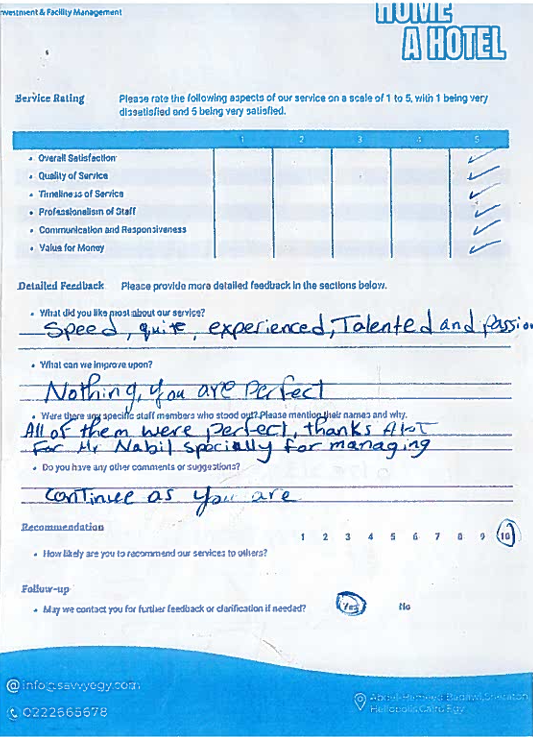 nvestment & Facility Management
HOME
A HOTEL
Service Rating
Please rate the following aspects of our service on a scale of 1 to 5, with 1 being very
dissatisfied and 5 being very satisfied.
1 2 3 4 5
• Overall Satisfaction ✓
• Quality of Service ✓
• Timeliness of Service ✓
• Professionalism of Staff ✓
• Communication and Responsiveness ✓
• Value for Money ✓
Detailed Feedback Please provide more detailed feedback in the sections below.
• What did you like most about our service?
Speed, quite, experienced, Talented and passio
• What can we improve upon?
Nothing, you are perfect
• Were there any specific staff members who stood out? Please mention their names and why.
All of them were perfect, thanks Alot
For Mr Nabil specially for managing
• Do you have any other comments or suggestions?
continue as you are
Recommendation
1 2 3 4 5 6 7 8 9 10
• How likely are you to recommend our services to others?
Follow-up
• May we contact you for further feedback or clarification if needed? Yes No
@ info@savvyegy.com
0222665678
Abdel-Hameed Badawi, Sheraton,
Heliopolis, Cairo, Egy